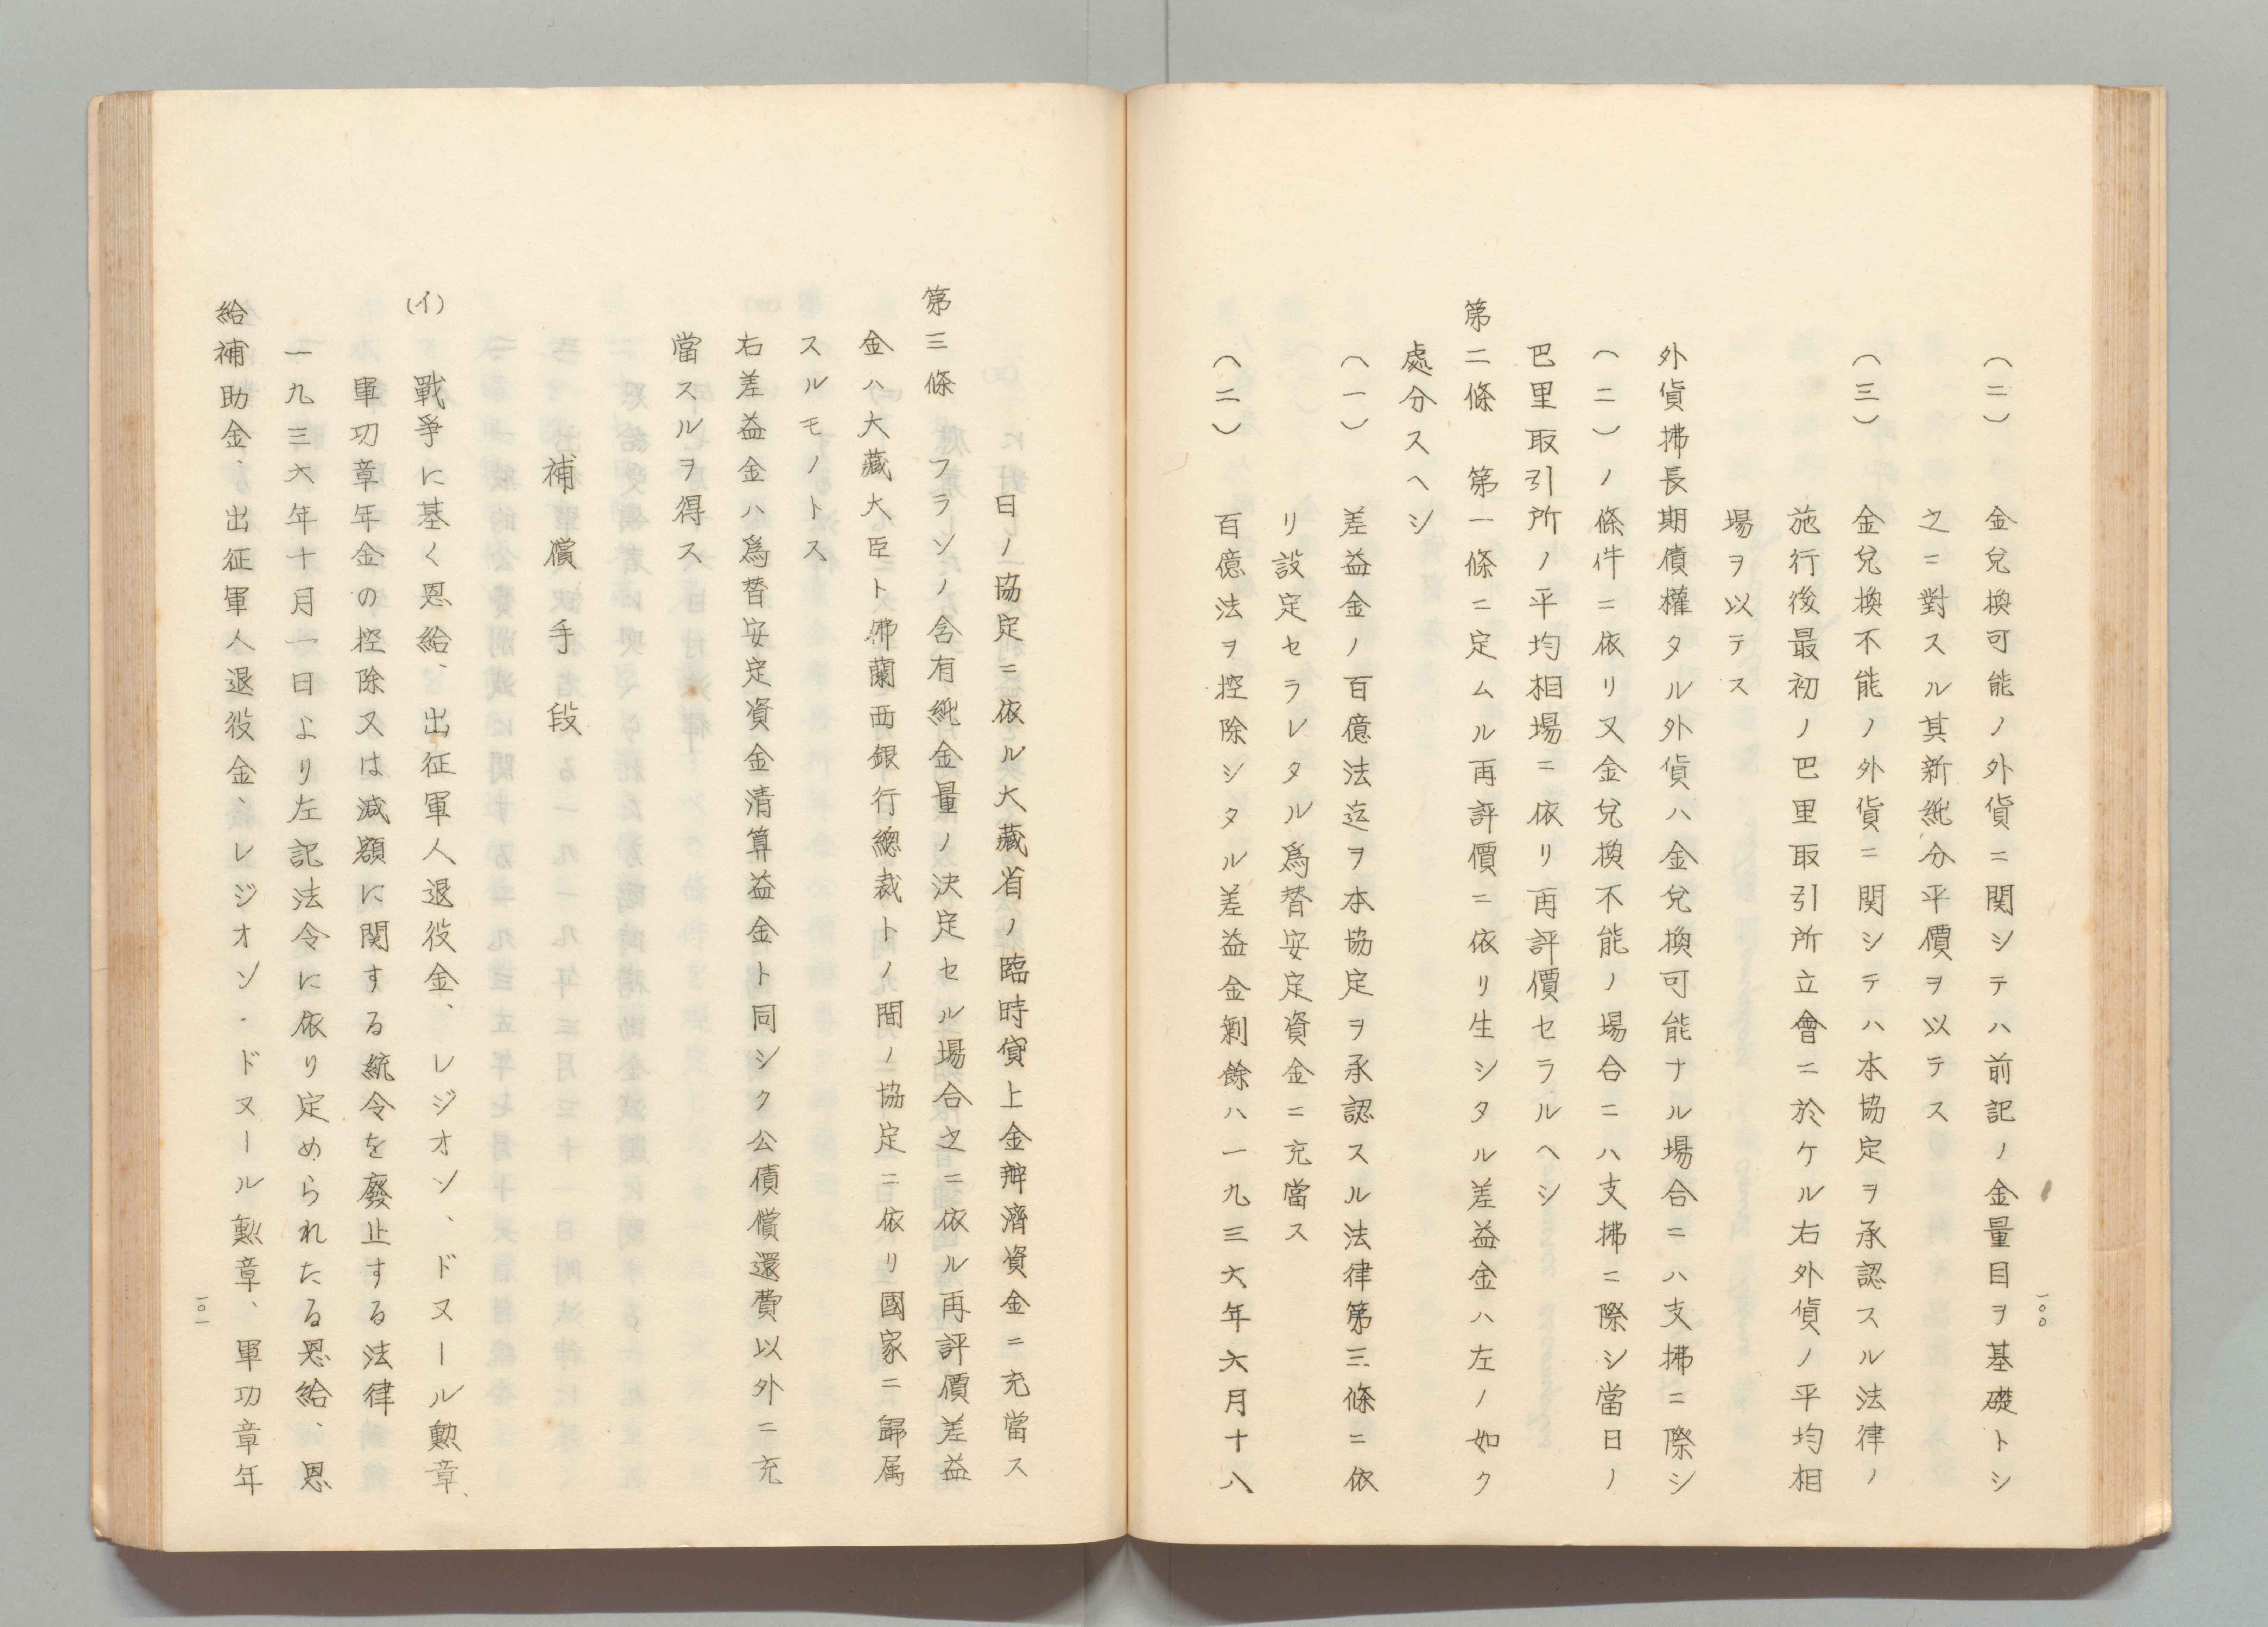 (二)　金兌換可能ノ外貨ニ関シテハ前記ノ金量目ヲ基礎トシ
之ニ對スル其新純分平價ヲ以テス
(三)　金兌換不能ノ外貨ニ関シテハ本協定ヲ承認スル法律ノ
施行後最初ノ巴里取引所立會ニ於ケル右外貨ノ平均相
場ヲ以テス
外貨拂長期債權タル外貨ハ金兌換可能ナル場合ニハ支拂ニ際シ
(二)ノ條件ニ依リ又金兌換不能ノ場合ニハ支拂ニ際シ當日ノ
巴里取引所ノ平均相場ニ依リ再評價セラルヘシ
第二條　第一條ニ定ムル再評價ニ依リ生シタル差益金ハ左ノ如ク
處分スヘシ
(一)　差益金ノ百億法迄ヲ本協定ヲ承認スル法律第三條ニ依
リ設定セラレタル爲替安定資金ニ充當ス
(二)　百億法ヲ控除シタル差益金剰餘ハ一九三六年六月十八
一〇〇
日ノ協定ニ依ル大藏省ノ臨時貸上金辨濟資金ニ充當ス
第三條　フランノ含有純金量ノ決定セル場合之ニ依ル再評價差益
金ハ大藏大臣ト佛蘭西銀行總裁トノ間ノ協定ニ依リ國家ニ歸属
スルモノトス
右差益金ハ爲替安定資金清算益金ト同シク公債償還費以外ニ充
當スルヲ得ス
補償手段
(イ)　戰爭に基く恩給、出征軍人退役金、レジオン、ドヌール勲章、
軍功章年金の控除又は減額に関する統令を廢止する法律
一九三六年十月一日より左記法令に依り定められたる恩給、恩
給補助金、出征軍人退役金、レジオン・ドヌール勲章、軍功章年
一〇一